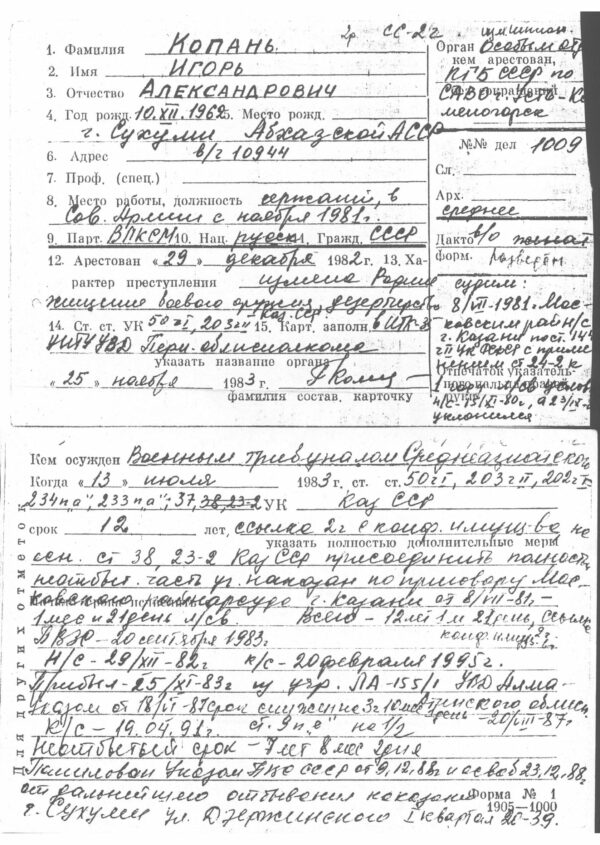 2р СС-2г
1. Фамилия КОПАНЬ
2. Имя ИГОРЬ
3. Отчество АЛЕКСАНДРОВИЧ
4. Год рожд. 10.XII.1962 5. Место рожд.
г. Сухуми Абхазской АССР
6. Адрес в/ч 10944
7. Проф. (спец.)
8. Место работы, должность сержант, в
Сов. Армии с ноября 1981г.
9. Парт. ВЛКСМ 10. Нац. русск 11. Гражд. СССР
12. Арестован « 29 » декабря 1982 г. 13. Ха-
рактер преступления измена Родине
хищение боевого оружия, дезертирство
Каз ССР
14. Ст. ст. УК 50 ч I, 203 ч II 15. Карт. заполн. в ИТК-35
УИТУ УВД Перм. облисполкома
указать название органа
« 25 » ноября 1983 г.
фамилия состав. карточку
Орган Особым отд
кем арестован,
КГБ СССР по
САВО г. Усть-Ка
меногорск
№№ дел 1009
Сл.
Арх.
среднее
Дакто в/о женат
форм. разведен
судим:
8/VII-1981г. Мос-
ковским рай н/с
г. Казани по ст. 144
ч II УК РСФСР с приме
нением ст 24-2 к
Отпечаток указатель-
уклонился
Кем осужден Военным трибуналом Среднеазиатского
Когда « 13 » июля 1983 г. ст. ст. 50 ч I, 203 ч II, 202 ч I
234 п "а", 233 п "а", 37, 38, 23-2 УК Каз ССР
срок 12 лет, ссылка 2г с конф. имущ-ва на
указать полностью дополнительные меры
осн. ст 38, 23-2 Каз ССР присоединить полность
неотбыт. часть уг. наказан по приговору Мос-
ковского райнарсуда г. Казани от 8/VII-81, –
1 мес и 21 день л/св. Всего – 12 лет 1 м 21 день, ссылк
конф. имущ.
ПВЗС – 20 сентября 1983г.
Н/с – 29/XII-82г к/с – 20 февраля 1995г.
Прибыл – 25/XI-83г из учр. ЛА-155/1 УВД Алма-
Атинского облисп.
Указом от 18/VI-87 срок снижен на 3г 10 мес день – 20/VIII-87г.
К/С – 19.04.91г. ст. 9 п "е" на 1/2
Неотбытый срок – 7 лет 8 мес 2 дня
Помилован Указом ПВС СССР от 9.12.88г и освоб 23.12.88г
от дальнейшего отбывания наказания
Форма № 1
1905—1000
г. Сухуми ул. Дзержинского I квартал 20-39.
Для других отметок